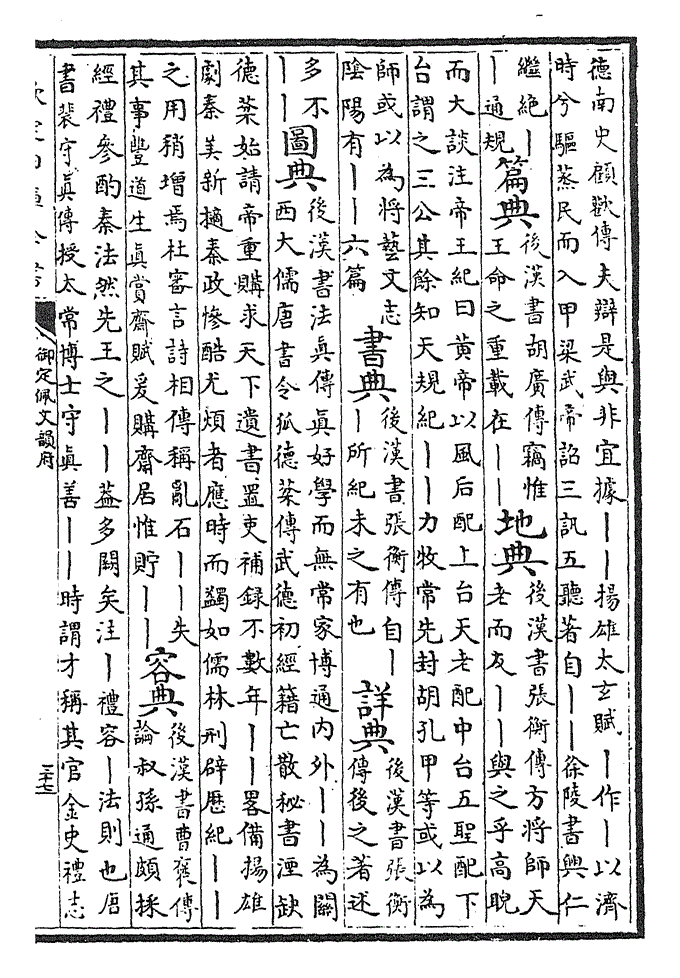 德南史顧歡傳夫辯是與非宜據——揚雄太玄賦—作—以濟
時兮驅蒸民而入甲梁武帝詔三訊五聽著自——徐陵書興仁
繼絶—
—通規
篇典
後漢書胡廣傳竊惟
王命之重載在——
地典
後漢書張衡傳方將師天
老而友——與之乎高睨
而大談注帝王紀曰黃帝以風后配上台天老配中台五聖配下
台謂之三公其餘知天規紀——力牧常先封胡孔甲等或以為
師或以為將藝文志
陰陽有——六篇
書典
後漢書張衡傳自—
—所紀未之有也
詳典
後漢書張衡
傳後之著述
多不
——
圖典
後漢書法真傳真好學而無常家博通内外——為關
西大儒唐書令狐德棻傳武德初經籍亡散秘書湮缺
德棻始請帝重購求天下遺書置吏補録不數年——畧備揚雄
劇秦美新擿秦政慘酷尤煩者應時而蠲如儒林刑辟歴紀——
之用稍增焉杜審言詩相傳稱亂石——失
其事豐道生真賞齋賦爰購齋居惟貯——
容典
後漢書曹褒傳
論叔孫通頗採
經禮參酌秦法然先王之——葢多闕矣注—禮容—法則也唐
書裴守真傳授太常博士守真善——時謂才稱其官金史禮志
御定佩文韻府
三十七